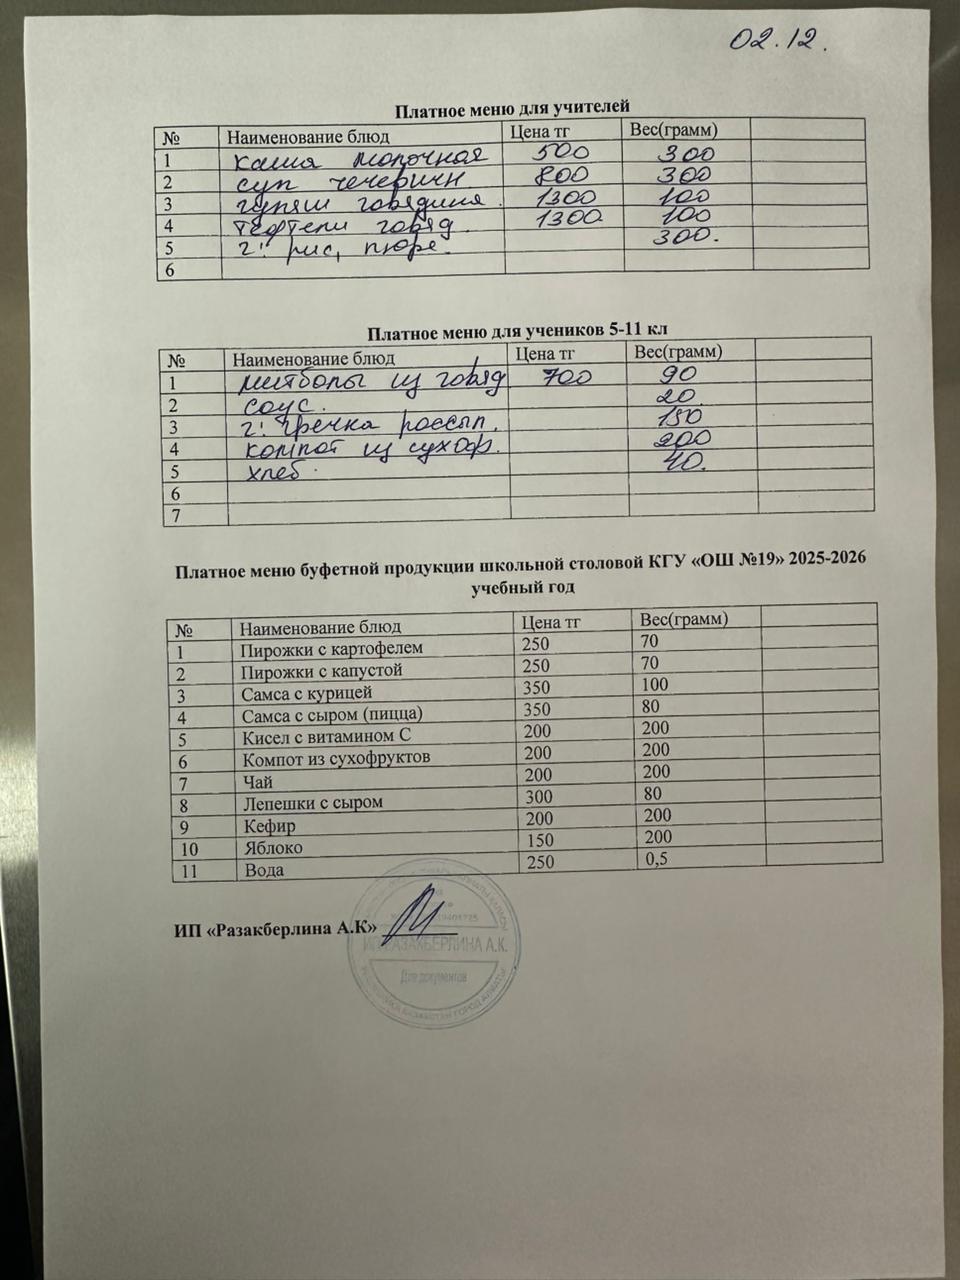 02.12.
Платное меню для учителей
№ Наименование блюд Цена тг Вес(грамм)
1 каша молочная 500 300
2 суп чечеричн 800 300
3 гуляш говядина 1300 100
4 тефтели говяд. 1300 100
5 г! рис, пюре. 300.
6
Платное меню для учеников 5-11 кл
№ Наименование блюд Цена тг Вес(грамм)
1 митболы из говяд 700 90
2 соус. 20
3 г! гречка рассып. 150
4 компот из сухофр. 200
5 хлеб. 40.
6
7
Платное меню буфетной продукции школьной столовой КГУ «ОШ №19» 2025-2026
учебный год
№ Наименование блюд Цена тг Вес(грамм)
1 Пирожки с картофелем 250 70
2 Пирожки с капустой 250 70
3 Самса с курицей 350 100
4 Самса с сыром (пицца) 350 80
5 Кисел с витамином С 200 200
6 Компот из сухофруктов 200 200
7 Чай 200 200
8 Лепешки с сыром 300 80
9 Кефир 200 200
10 Яблоко 150 200
11 Вода 250 0,5
ИП «Разакберлина А.К»
ИП РАЗАКБЕРЛИНА А.К.
Для документов
РЕСПУБЛИКА КАЗАХСТАН ГОРОД АЛМАТЫ